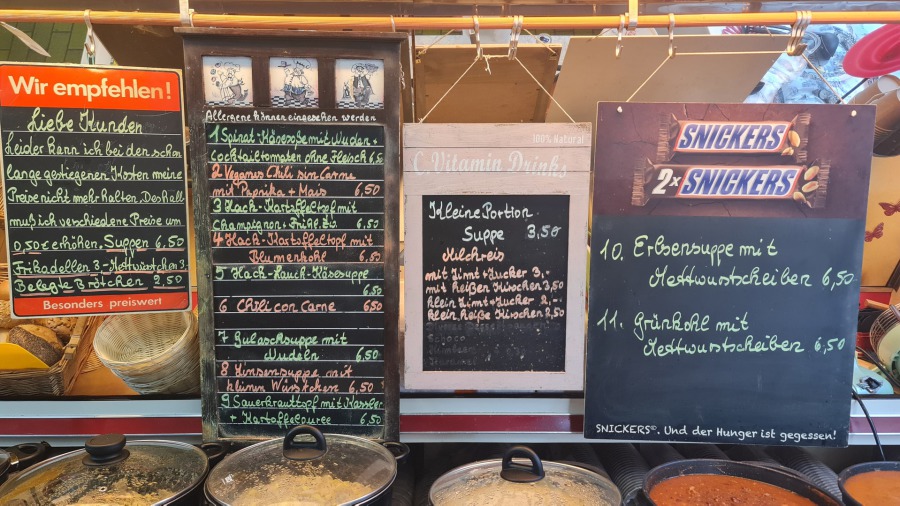 Wir empfehlen!
Liebe Kunden
Leider kann ich bei den schon
lange gestiegenen Kosten meine
Preise nicht mehr halten. Deshalb
muß ich verschiedene Preise um
0,50€ erhöhen, Suppen 6.50
Frikadellen 3,- Mettwürstchen 3,-
Belegte Brötchen 2,50
Besonders preiswert
Allergene können eingesehen werden
1 Spinat-Käsesoße mit Nudeln +
Cocktailtomaten ohne Fleisch 6,50
2 Veganes Chili sin Carne
mit Paprika + Mais 6,50
3 Hack-Kartoffeltopf mit
Champignon + Frühl.Zw. 6.50
4 Hack-Kartoffeltopf mit
Blumenkohl 6,50
5 Hack-Lauch-Käsesuppe
6,50
6 Chili con Carne 6,50
7 Gulaschsuppe mit
Nudeln 6,50
8 Linsensuppe mit
kleinen Würstchen 6,50
9 Sauerkrauttopf mit Kassler
+ Kartoffelpüree 6,50
100% Natural
C. Vitamin Drinks
Kleine Portion
Suppe 3,50
Milchreis
mit Zimt + Zucker 3,-
mit heißen Kirschen 3,50
klein Zimt + Zucker 2,-
klein heiße Kirschen 2,50
SNICKERS
2x SNICKERS
10. Erbsensuppe mit
Mettwurstscheiben 6,50
11. Grünkohl mit
Mettwurstscheiben 6,50
SNICKERS©. Und der Hunger ist gegessen!